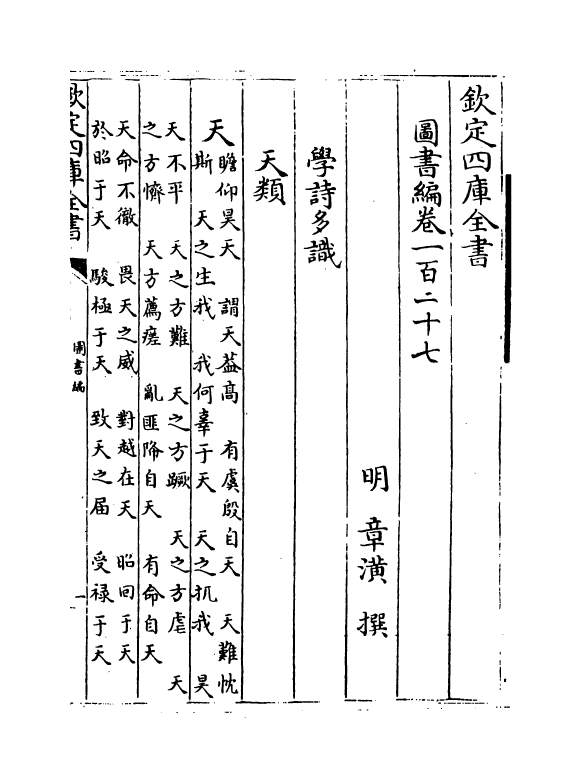 欽定四庫全書
圖書編卷一百二十七
明 章潢 撰
學詩多識
天類
天
瞻仰昊天 謂天葢高 有虞殷自天 天難忱
斯 天之生我 我何辜于天 天之扤我 昊
天不平 天之方難 天之方蹶 天之方虐 天
之方懠 天方薦瘥 亂匪降自天 有命自天
天命不徹 畏天之威 對越在天 昭回于天
於昭于天 駿極于天 致天之届 受禄于天
欽定四庫全書
圖書編
一